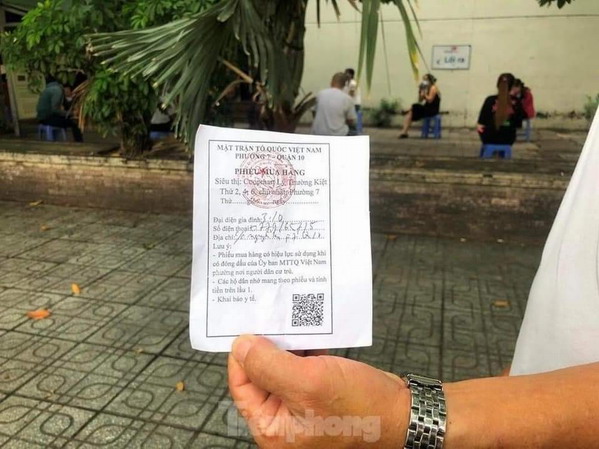 Lối ra
MẶT TRẬN TỔ QUỐC VIỆT NAM
PHƯỜNG 7 - QUẬN 10
PHIẾU MUA HÀNG
Siêu thị: Coopmart Lý Thường Kiệt
Thứ 2, 4, 6, chủ nhật Phường 7
Thứ
Đại diện gia đình:
Số điện thoại:
Địa chỉ:
Lưu ý:
- Phiếu mua hàng có hiệu lực sử dụng khi
có đóng dấu của Ủy ban MTTQ Việt Nam
phường nơi người dân cư trú.
- Các hộ dân nhớ mang theo phiếu và tính
tiền trên lầu 1.
- Khai báo y tế.
Tiền phong